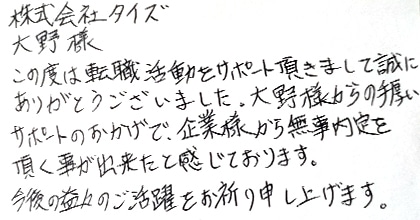 株式会社タイズ
大野様
この度は転職活動をサポート頂きまして誠に
ありがとうございました。大野様からの手厚い
サポートのおかげで、企業様から無事内定を
頂く事が出来たと感じております。
今後の益々のご活躍をお祈り申し上げます。